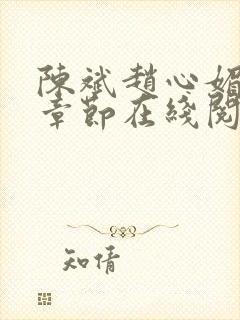 陳斌趙心媚
章節在綫閱
知情